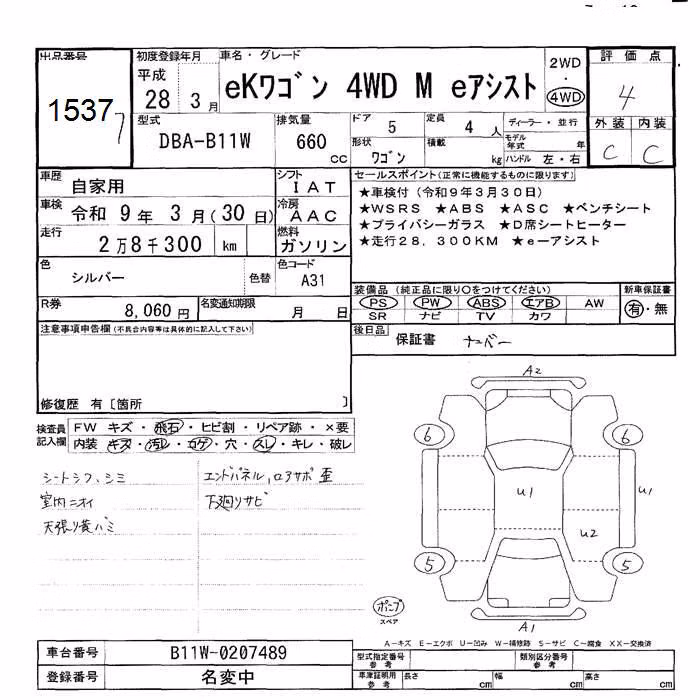 出品番号
1537
初度登録年月
平成
28 3月
車名・グレード
eKワゴン 4WD M eアシスト
2WD
・
4WD
評価点
4
外装 内装
C C
型式
DBA-B11W
排気量
660
cc
ドア 5
定員 4 人
形状
ワゴン
積載 kg
ディーラー・並行
モデル年式 年
ハンドル 左・右
車歴
自家用
シフト
IAT
車検
令和 9年 3月(30日)
冷房
AAC
走行
2万8千300 km
燃料
ガソリン
色
シルバー
色替
色コード
A31
R券
8,060円
名変通知期限
月 日
セールスポイント(正常に機能するものに限ります)
★車検付(令和9年3月30日)
★WSRS ★ABS ★ASC ★ベンチシート
★プライバシーガラス ★D席シートヒーター
★走行28,300KM ★e-アシスト
装備品(純正品に限り○をつけてください)
PS PW ABS エアB AW
SR ナビ TV カワ
新車保証書
有・無
後日品
保証書 ナンバー
注意事項申告欄(不具合内容等は具体的に記入して下さい)
修復歴 有〔箇所 〕
検査員記入欄
FW キズ・飛石・ヒビ割・リペア跡・×要
内装 キズ・汚レ・コゲ・穴・スレ・キレ・破レ
シートシワ、シミ
室内ニオイ
天張り黄バミ
エンドパネル、ロアサポ歪
下廻りサビ
A2
6 6
U1 U1
U2
5 5
A1
ポンプ
スペア
A-キズ E-エクボ U-凹み W-補修跡 S-サビ C-腐食 XX-交換済
車台番号
B11W-0207489
登録番号
名変中
型式指定番号
参考
類別区分番号
参考
車庫証明用
参考
長さ cm
幅 cm
高さ cm